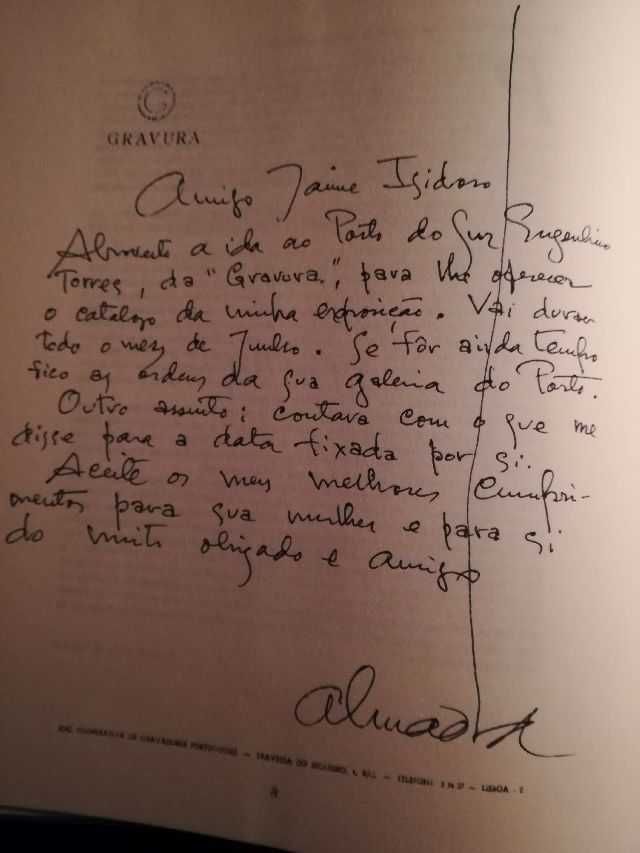 GRAVURA
Amigo Jaime Isidoro
a ida ao Porto do Snr Engenheiro
Torres, da "Gravura", para lhe oferecer
o catalogo da minha exposição. Vai durar
todo o mez de Junho. Se fôr ainda tempo
fico as ordens da sua galeria do Porto.
Outro assunto: contava com o que me
disse para a data fixada por si.
Aceite os meus melhores cumpri-
mentos para sua mulher e para si
do muito obrigado e amigo
Almada
SOC. COOPERATIVA DE GRAVADORES PORTUGUESES — TRAVESSA DO — TELEFONE — LISBOA - 2